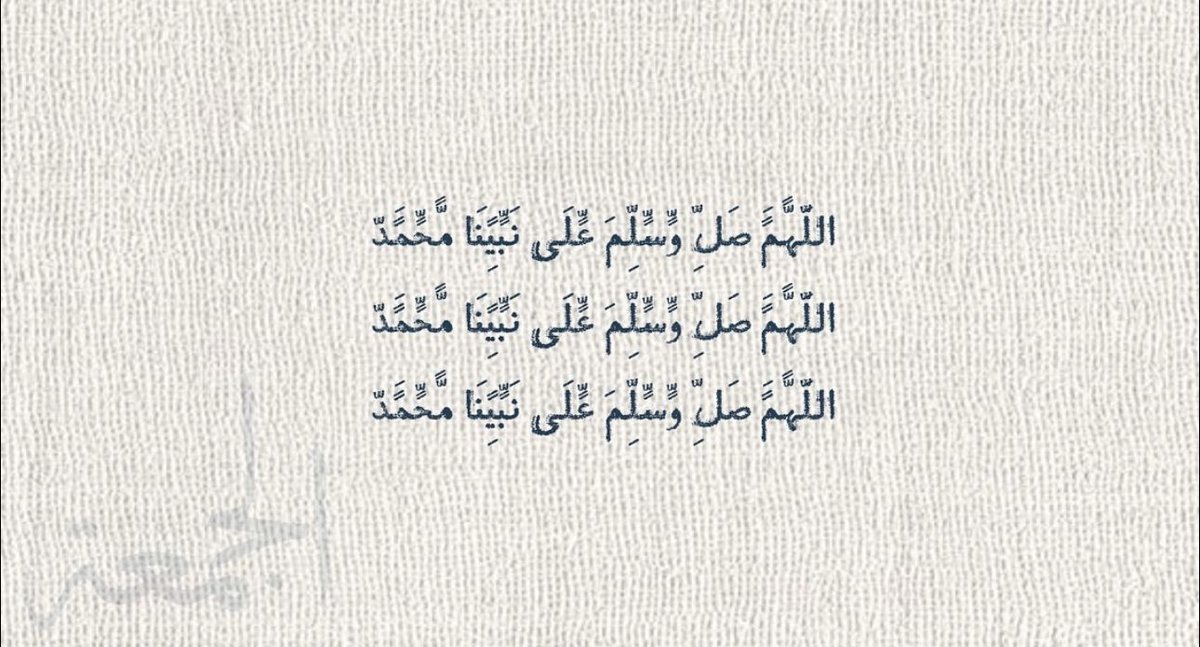 اللّهُمََّ صَلِّ وٍّسٍَّلِّمَ عٍّلَى نَبِّيٍَنَا مٌّحٍّمًدّ
اللّهُمََّ صَلِّ وٍّسٍَّلِّمَ عٍّلَى نَبِّيٍَنَا مٌّحٍّمًدّ
اللّهُمََّ صَلِّ وٍّسٍَّلِّمَ عٍّلَى نَبِّيٍَنَا مٌّحٍّمًدّ
الجمعة